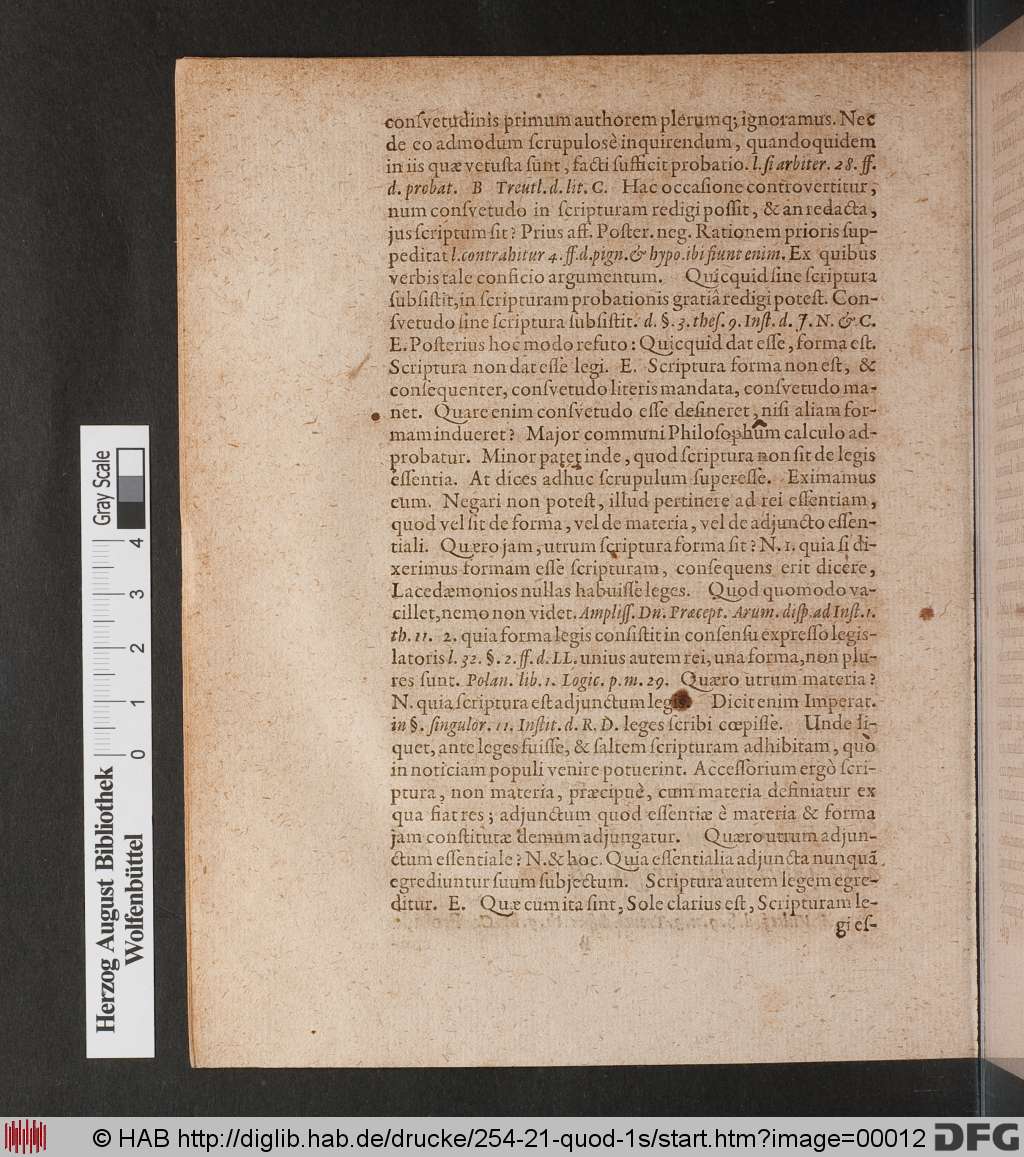 conſvetudinis primum authorem plerumq; ignoramus. Nec
de eo admodum ſcrupulosè inquirendum, quandoquidem
in iis quæ vetuſta ſunt, facti ſufficit probatio. l. ſi arbiter. 28. ff.
d. probat. B Treutl. d. lit. C. Hac occaſione controvertitur,
num conſvetudo in ſcripturam redigi poſſit, & an redacta,
jus ſcriptum ſit? Prius aff. Poſter. neg. Rationem prioris ſup-
peditat l. contrahitur 4. ff. d. pign. & hypo. ibi fiunt enim. Ex quibus
verbis tale conficio argumentum. Quicquid ſine ſcriptura
ſubſiſtit, in ſcripturam probationis gratiâ redigi poteſt. Con-
ſvetudo ſine ſcriptura ſubſiſtit. d. §. 3. theſ. 9. Inſt. d. J. N. & C.
E. Poſterius hoc modo refuto: Quicquid dat eſſe, forma eſt.
Scriptura non dat eſſe legi. E. Scriptura forma non eſt, &
conſequenter, conſvetudo literis mandata, conſvetudo ma-
net. Quare enim conſvetudo eſſe deſineret, niſi aliam for-
mam indueret? Major communi Philoſophûm calculo ad-
probatur. Minor patet inde, quod ſcriptura non ſit de legis
eſſentia. At dices adhuc ſcrupulum ſupereſſe. Eximamus
eum. Negari non poteſt, illud pertinere ad rei eſſentiam,
quod vel ſit de forma, vel de materia, vel de adjuncto eſſen-
tiali. Quæro jam, utrum ſcriptura forma ſit? N. 1. quia ſi di-
xerimus formam eſſe ſcripturam, conſequens erit dicere,
Lacedæmonios nullas habuiſſe leges. Quod quomodo va-
cillet, nemo non videt. Ampliſſ. Dn. Præcept. Arum. diſp. ad Inſt. 1.
th. 11. 2. quia forma legis conſiſtit in conſenſu expreſſo legis-
latoris l. 32. §. 2. ff. d. LL. unius autem rei, una forma, non plu-
res ſunt. Polan. lib. 1. Logic. p. m. 29. Quæro utrum materia?
N. quia ſcriptura eſt adjunctum legis. Dicit enim Imperat.
in §. ſingulor. 11. Inſtit. d. R. D. leges ſcribi cœpiſſe. Unde li-
quet, ante leges fuiſſe, & ſaltem ſcripturam adhibitam, quò
in noticiam populi venire potuerint. Acceſſorium ergò ſcri-
ptura, non materia, præcipuè, cum materia definiatur ex
qua fiat res; adjunctum quod eſſentiæ è materia & forma
jam conſtitutæ demum adjungatur. Quæro utrum adjun-
ctum eſſentiale? N. & hoc. Quia eſſentialia adjuncta nunquã
egrediuntur ſuum ſubjectum. Scriptura autem legem egre-
ditur. E. Quæ cum ita ſint, Sole clarius eſt, Scripturam le-
gi eſ-
Gray Scale
0 1 2 3 4
Herzog August Bibliothek
Wolfenbüttel
© HAB http://diglib.hab.de/drucke/254-21-quod-1s/start.htm?image=00012
DFG